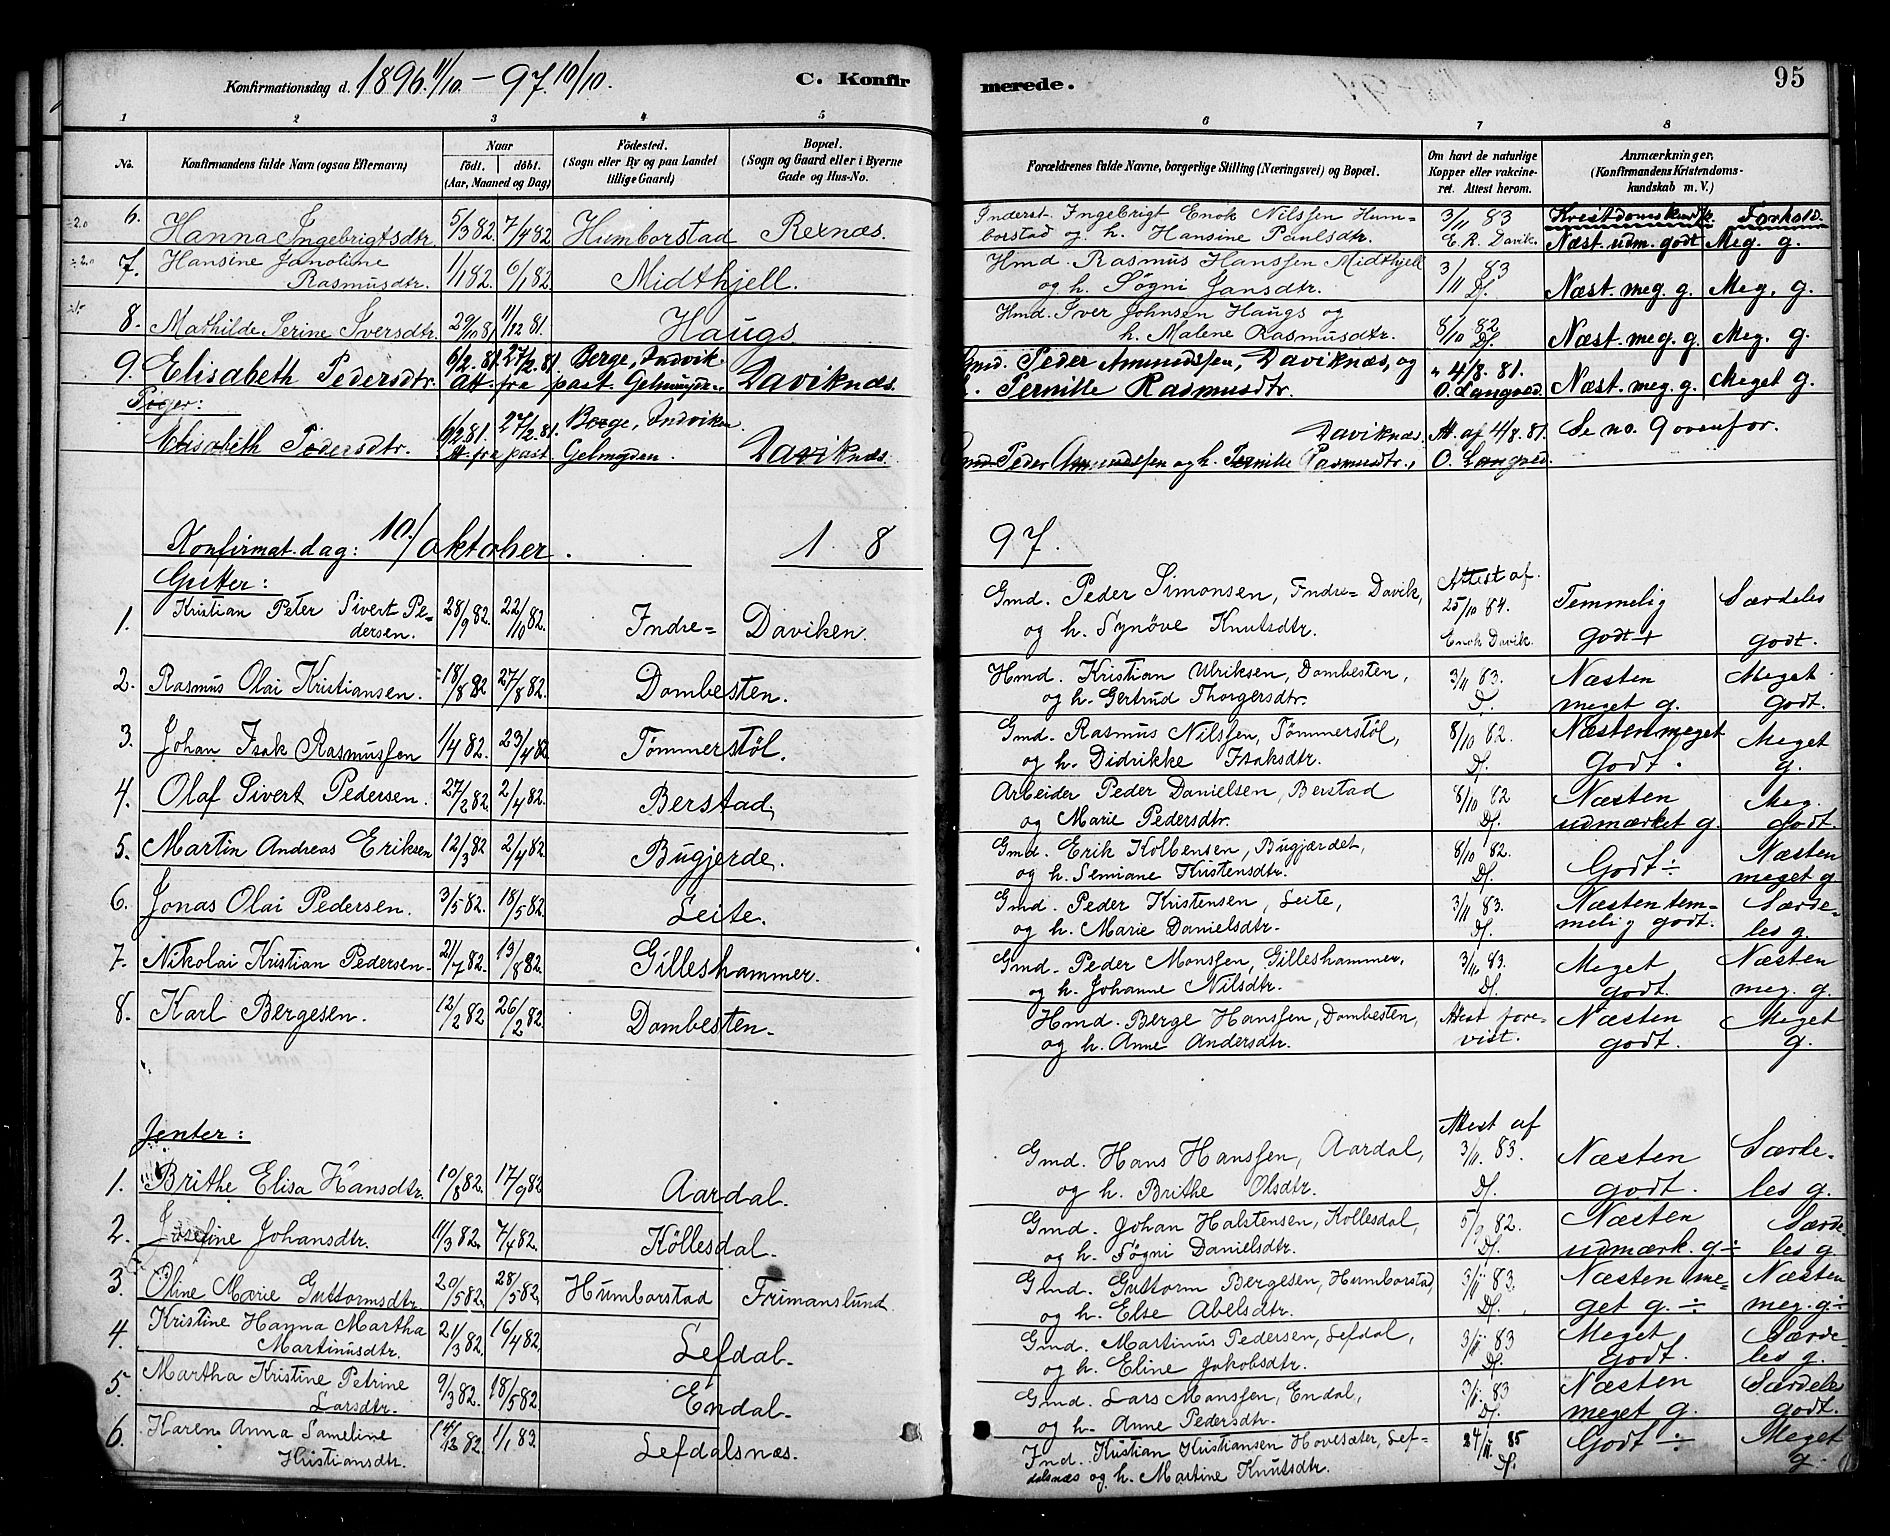 Konfirmationsdag d. 1896 11/10 - 97. 10/10. C. Konfirmerede. 95
1 2 3 4 5 6 7 8
No. Konfirmandens fulde Navn (ogsaa Efternavn) Naar födt. döbt. (Aar, Maaned og Dag) Födested. (Sogn eller By og paa Landet tillige Gaard) Bopæl. (Sogn og Gaard eller i Byerne Gade og Hus-No. Forældrenes fulde Navne, borgerlige Stilling (Næringsvei) og Bopæl. Om havt de naturlige Kopper eller vakcineret. Attest herom. Anmærkninger. (Konfirmandens Kristendomskundskab m. V.)
Kristdomskundsk. Forhold.
6. Hanna Ingebrigtsdtr. 5/3 82. 7/4 82 Humborstad Rexnæs. Inderst. Ingebrigt Enok Nilssen Hum-
borstad og h. Hansine Paulsdtr. 3/11 83 E. R. Davik. Næst. udm. godt Meg. g.
7. Hansine Janoline
Rasmusdtr. 1/1 82. 6/1 82. Midthjell. Hmd. Rasmus Hanssen Midthjell
og h. Søgni Jansdtr. 3/11 83 Df. Næst. meg. g. Meg. g.
8. Mathilde Serine Iversdtr. 29/10 81 11/12 81. Haugs Hmd. Iver Johnsen Haugs og
h. Malene Rasmusdtr. 8/10 82 Df. Næst. meg. g. Meg. g.
9. Elisabeth Pedersdtr. 6/2. 81. 27/2. 81. Berge, Indvik. Daviknæs. Gmd. Peder Amundssen, Daviknæs, og
Att. fra past. h. Pernille Rasmusdtr. 4/8. 81. O. Langved. Næst. meg. g. Meget g.
Piger:
Elisabeth Pedersdtr. 6/2 81. 27/2. 81. Berge, Indviken. Daviknæs. Daviknæs. Att. af 4/8. 81. Se no. 9 ovenfor.
Att. fra past. Gmd. Peder Amundssen og h. Pernille Rasmusdtr., O. Langved.
Konfirmat. dag: 10./oktober. 1 8 97.
Gutter:
1. Kristian Peter Sivert Pe-
dersen. 28/9 82. 22/10 82. Indre= Daviken. Gmd. Peder Simonsen, Indre= Davik,
og h. Synöve Knutsdtr. Attest af. 25/10 84. Enok Davik. Temmelig godt + Særdeles godt.
2. Rasmus Olai Kristiansen. 18/8 82 27/8 82. Dombesten. Hmd. Kristian Ulriksen, Dombesten,
og h. Gertrud Thorgersdtr. 3/11 83. D. Næsten meget g. Meget godt.
3. Johan Isak Rasmussen 1/4 82. 23/4 82 Tömmerstöl. Gmd. Rasmus Nilssen, Tömmerstöl,
og h. Didrikke Isaksdtr. 8/10 82. Df. Næsten meget godt. Meget g.
4. Olaf Sivert Pedersen. 27/2 82. 2/4 82. Berstad. Arbeider Peder Danielsen, Berstad
og Marie Pedersdtr. 8/10 82 Df. Næsten udmærket g. Meg. godt.
5. Martin Andreas Eriksen 12/3 82 2/4 82. Bugjerde. Gmd. Erik Kolbensen, Bugjærdet,
og h. Semiane Kristensdtr. 8/10 82. Df. Godt ÷ Næsten meget g
6. Jonas Olai Pedersen. 3/5 82. 18/5 82. Leite. Gmd. Peder Kristensen, Leite,
og h. Marie Danielsdtr. 3/11 83. Df. Næsten tem-
melig godt. Særde-
les g.
7. Nikolai Kristian Pedersen. 21/7 82. 13/8 82. Gilleshammer. Gmd. Peder Monssen, Gilleshammer,
og h. Johanne Nilsdtr. 3/11. 83. Df. Meget godt. Næsten meg. g.
8. Karl Bergesen. 12/2 82 26/2 82. Dombesten. Hmd. Berge Hanssen, Dombesten,
og h. Anne Andersdtr. Attest fore-
vist. Næsten godt. Meget g.
Jenter:
1. Brithe Elisa Hansdtr. 10/8 82. 17/9 82 Aardal. Gmd. Hans Hanssen, Aardal,
og h. Brithe Olsdtr. Attest af 3/11. 83. Df. Næsten godt. Særde-
les g.
2. Josefine Johansdtr. 11/3 82. 7/4 82. Köllesdal. Gmd. Johan Halstensen, Kollesdal,
og h. Søgni Danielsdtr. 5/9 82. Df. Næsten udmærk. g ÷ Særde
les g.
3. Oline Marie Guttormsdtr. 20/5 82. 28/5 82. Humborstad Frimanslund. Gmd. Guttorm Bergesen, Humborstad,
og h. Else Abelsdtr. 3/11 83. Df. Næsten me-
get g. ÷ Næsten meg. g ÷
4. Kristine Hanna Martha
Martinusdtr. 21/3 82. 16/4 82. Lefdal. Gmd. Martinus Pedersen, Lefdal,
og h. Eline Jakobsdtr. 3/11 83 Df. Meget godt. Særde
les g.
5. Martha Kristine Petrine
Larsdtr. 9/3 82. 18/5 82. Endal. Gmd. Lars Monssen, Endal,
og h. Anne Pedersdtr. 3/11 83 Df. Næsten meget g. Særdeles godt.
6. Karen Anna Sameline
Kristiansdtr. 82. 1/1 83. Lefdalsnæs. Ind. Kristian Kristiansen Hovesæter, Lef-
dalsnæs og h. Martine Knutsdtr. 24/11 85 Df. Godt ÷ Meget g.